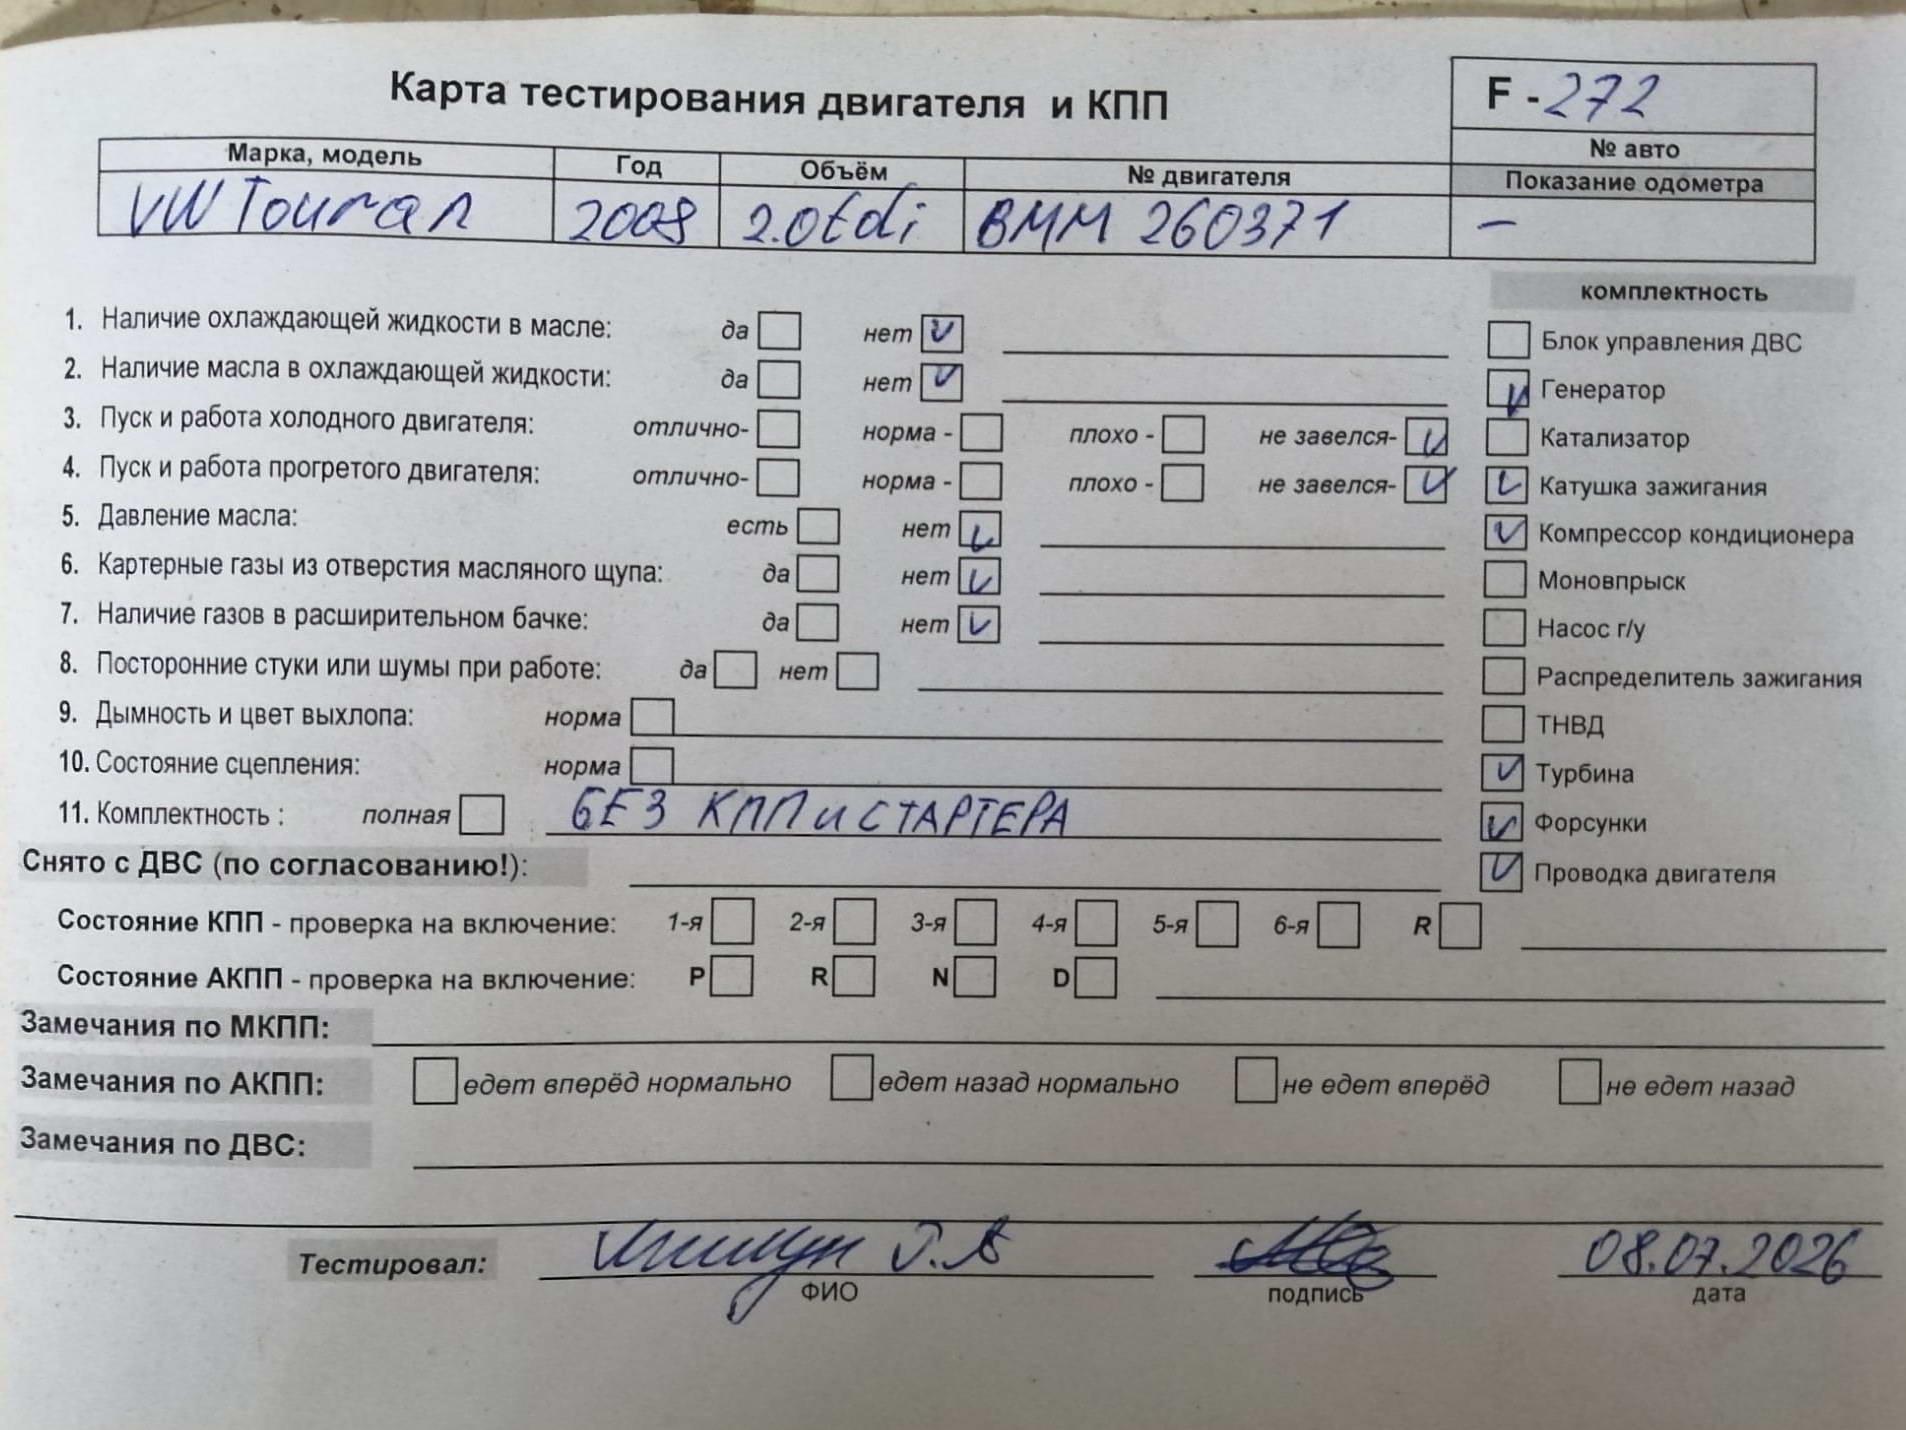 Карта тестирования двигателя и КПП
F - 272
№ авто
Марка, модель Год Объём № двигателя Показание одометра
VW Touran 2008 2.0tdi BMM 260371 –
комплектность
1. Наличие охлаждающей жидкости в масле: да нет ✓
Блок управления ДВС
2. Наличие масла в охлаждающей жидкости: да нет ✓
✓ Генератор
3. Пуск и работа холодного двигателя: отлично- норма - плохо - не завелся- ✓
Катализатор
4. Пуск и работа прогретого двигателя: отлично- норма - плохо - не завелся- ✓
✓ Катушка зажигания
5. Давление масла: есть нет ✓
✓ Компрессор кондиционера
6. Картерные газы из отверстия масляного щупа: да нет ✓
Моновпрыск
7. Наличие газов в расширительном бачке: да нет ✓
Насос г/у
8. Посторонние стуки или шумы при работе: да нет
Распределитель зажигания
9. Дымность и цвет выхлопа: норма
ТНВД
10. Состояние сцепления: норма
✓ Турбина
11. Комплектность : полная БЕЗ КПП и СТАРТЕРА
✓ Форсунки
Снято с ДВС (по согласованию!):
✓ Проводка двигателя
Состояние КПП - проверка на включение: 1-я 2-я 3-я 4-я 5-я 6-я R
Состояние АКПП - проверка на включение: P R N D
Замечания по МКПП:
Замечания по АКПП: едет вперёд нормально едет назад нормально не едет вперёд не едет назад
Замечания по ДВС:
Тестировал: 08.07.2026
ФИО подпись дата